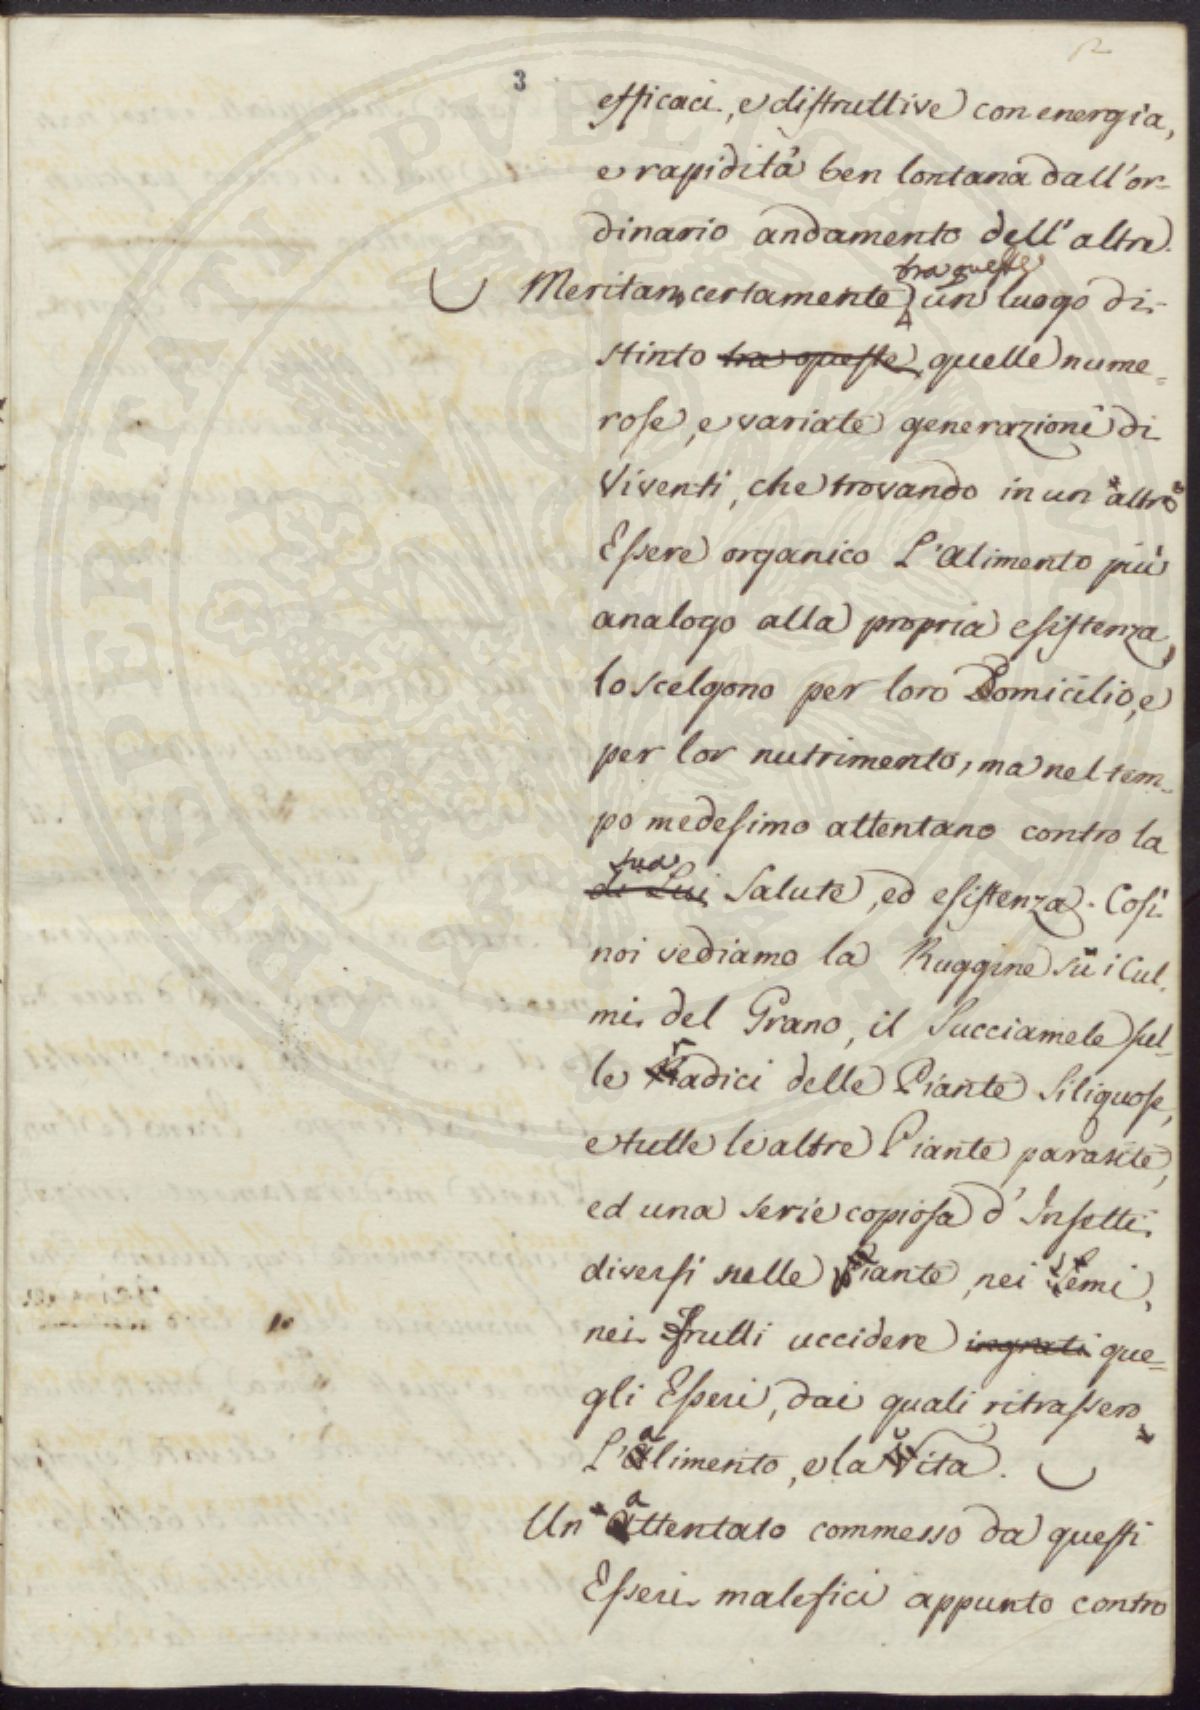 3
efficaci, e distruttive con energia,
e rapidità ben lontana dall'or-
dinario andamento dell'altre.
tra queste
Meritan certamente un luogo di-
stinto tra queste quelle nume-
rose, e variate generazioni di
Viventi, che trovando in un altro
Essere organico L'alimento più
analogo alla propria esistenza,
lo scelgono per loro Domicilio, e
per lor nutrimento, ma nel tem-
po medesimo attentano contro la
sua
di Lui Salute, ed esistenza. Così
noi vediamo la Ruggine su i Cul-
mi del Grano, il Succiamele sul-
le radici delle Piante Siliquose,
e tutte le altre Piante parasite,
ed una serie copiosa d'Insetti
diversi nelle Piante, nei semi,
nei frutti uccidere ingrati que-
gli Esseri, dai quali ritrassero
L'alimento, e la vita.
Un attentato commesso da questi
Esseri malefici appunto contro
PROSPERITATI PVBLICAE